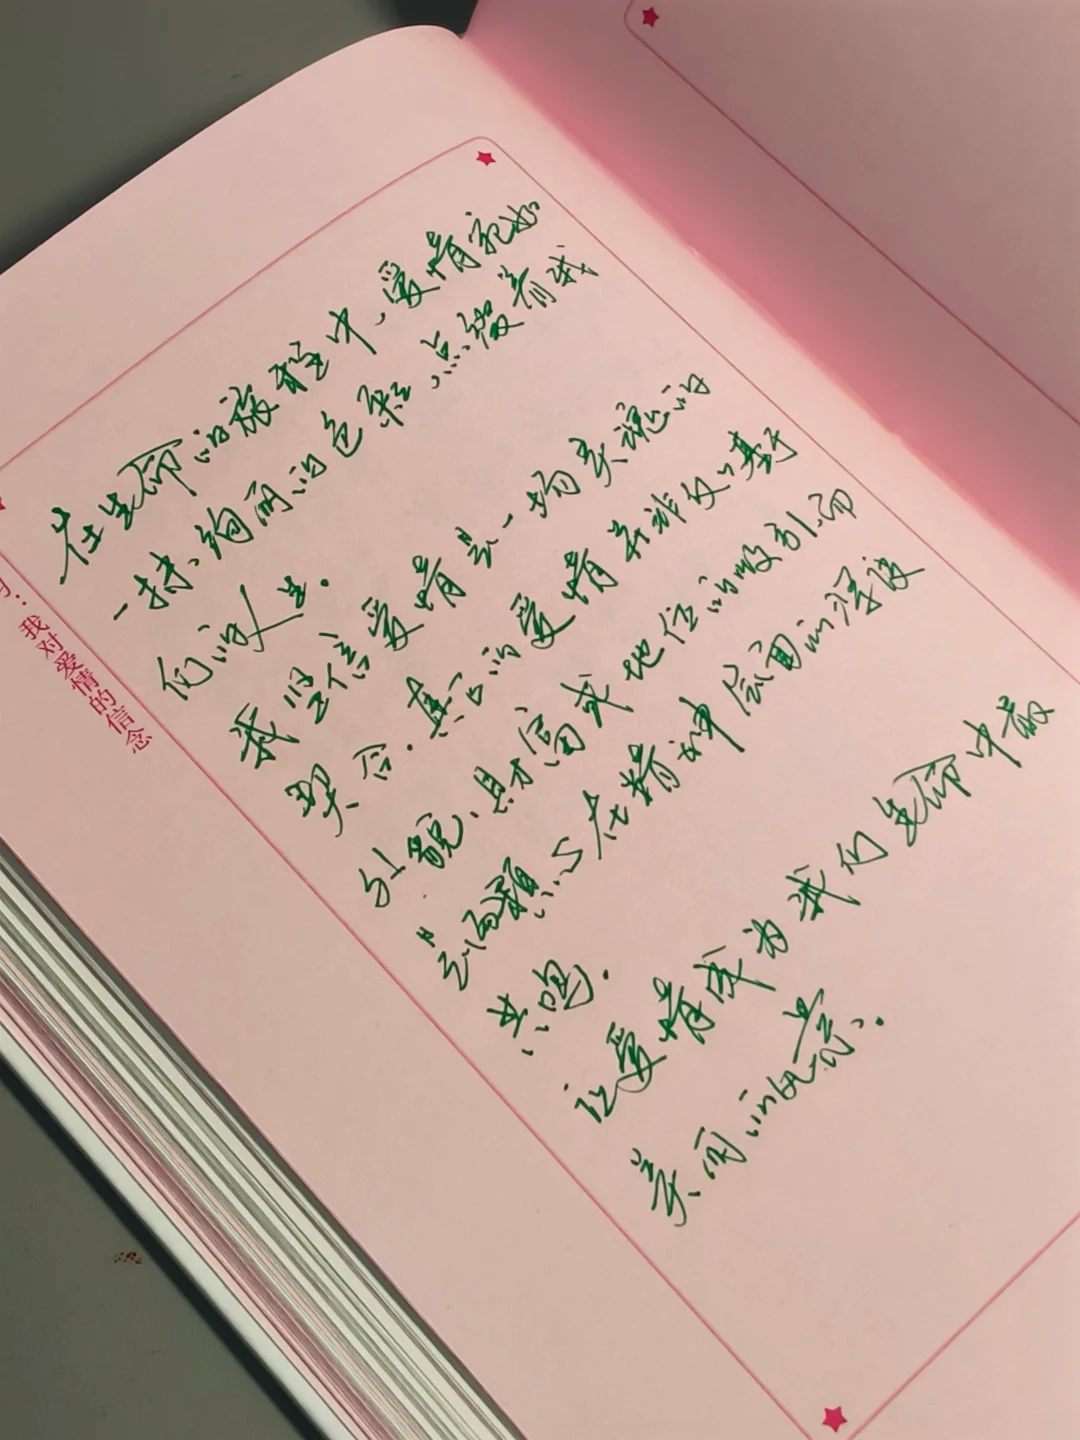 在生命的旅程中、爱情宛如
一抹绚丽的色彩、点缀着我
们的人生.
我坚信爱情是一场灵魂的
契合.真正的爱情并非仅仅基于
外貌、财富或地位的吸引.而
是两颗心在精神层面的深度
共鸣.
让爱情成为我们生命中最
美丽的风景.
：我对爱情的信念